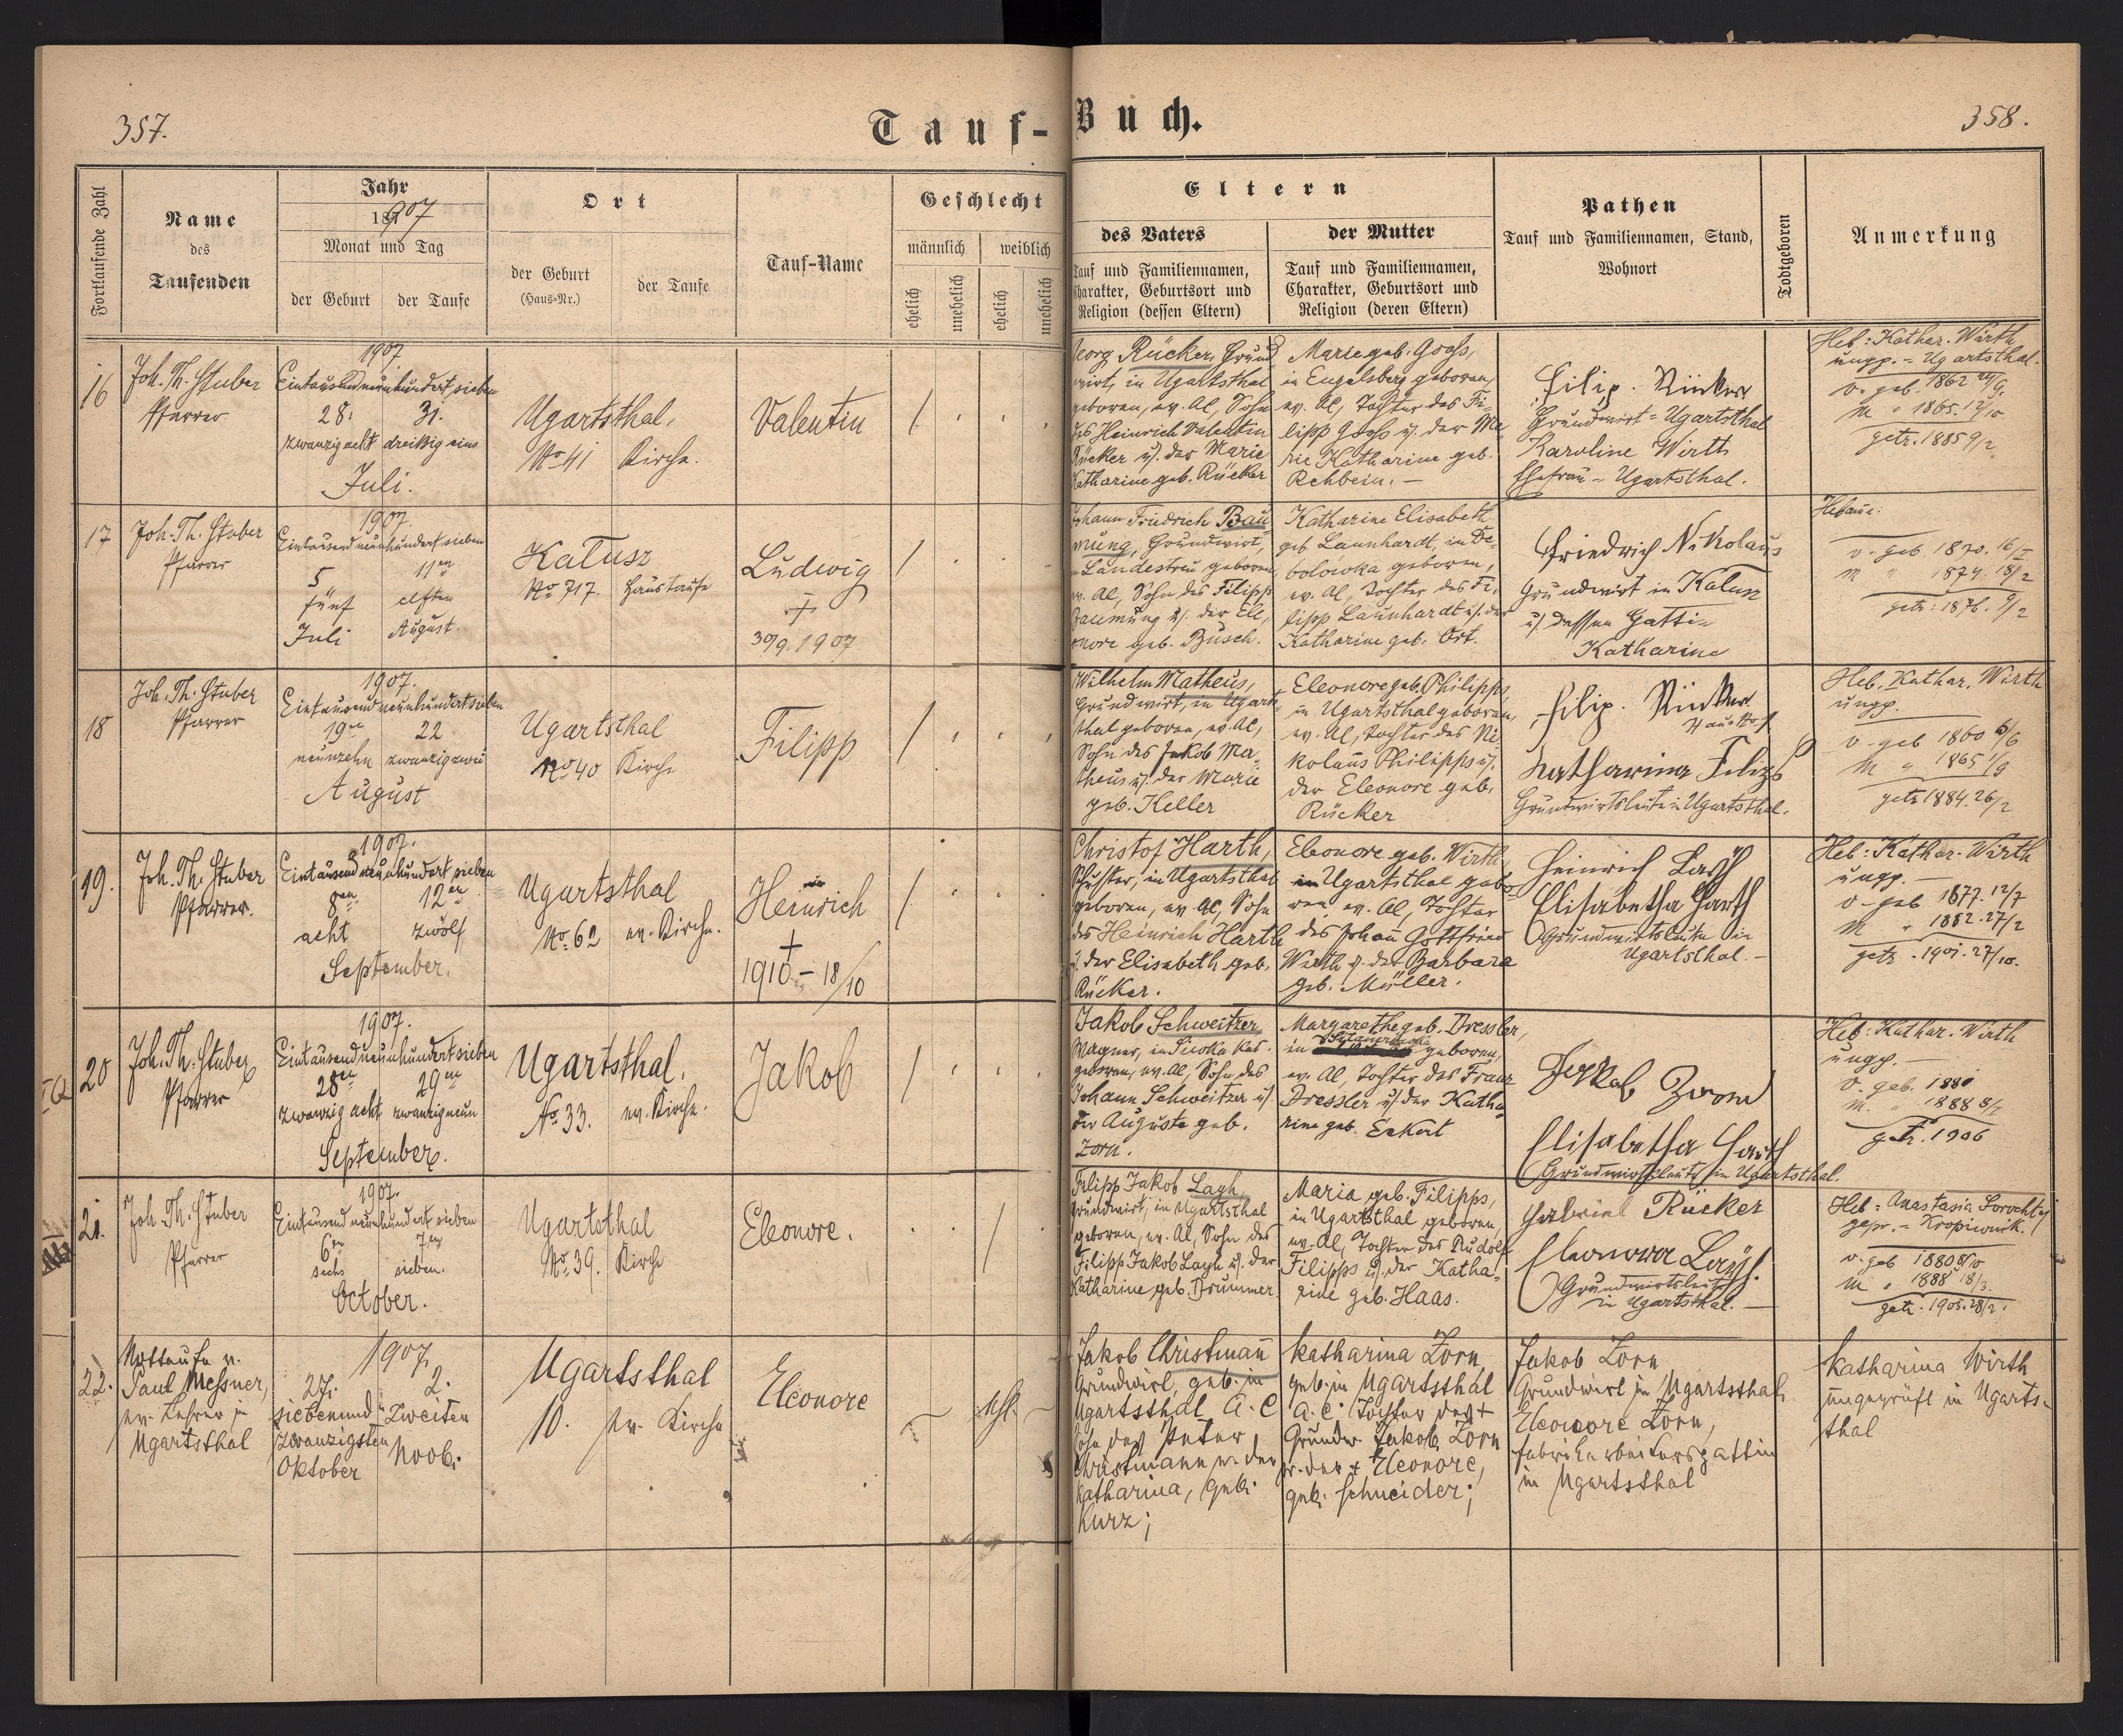 357.
Tauf-Buch.
358.
Fortlaufende Zahl
Name
des
Taufenden
Jahr
1907
Monat und Tag
der Geburt
der Taufe
Ort
der Geburt
(Haus-Nr.)
der Taufe
Tauf-Name
Geschlecht
männlich
weiblich
ehelich
unehelich
ehelich
unehelich
Eltern
des Vaters
Tauf und Familiennamen,
Charakter, Geburtsort und
Religion (dessen Eltern)
der Mutter
Tauf und Familiennamen,
Charakter, Geburtsort und
Religion (deren Eltern)
Pathen
Tauf und Familiennamen, Stand,
Wohnort
Todtgeboren
Anmerkung
16
Joh. Th. Stuber
Pfarrer
1907.
Eintausendneunhundertsieben
28. 31.
zwanzigacht dreißigeins
Juli.
Ugartsthal,
No 41 Kirche.
Valentin
Georg Rücker, Grund
wirt, in Ugartsthal
geboren, ev. AC, Sohn
des Heinrich Valentin
Rücker u. der Marie
Katharine geb. Rücker
Marie geb. Gross,
in Engelsberg geboren,
ev. AC, Tochter des Fi-
lipp Gross u. der Ma-
rie Katharine geb.
Rehbein. -
Filip. Rücker
Grundwirt = Ugartsthal
Karoline Wirth
Ehefrau - Ugartsthal.
Heb: Kathar. Wirth
ungp. - Ugartsthal.
v. geb. 1862 24/9.
m " 1865. 12/10
getr. 1885 9/2
17
Joh. Th. Stuber
Pfarrer
1907.
Eintausend neunhundert sieben
5 11en
fünf elften
Juli August.
Kalusz
No 717. Haustaufe
Ludwig
+
30/9. 1907
Johann Friedrich Bau
mung, Grundwirt,
in Landestreu geboren,
ev. AC, Sohn des Filipp
Baumung u. der Ele,
onore geb. Busch.
Katharine Elisabeth
geb. Launhardt, in De-
bolowka geboren,
ev. AC, Tochter des Fi,
lipp Launhardt u. der
Katharine geb. Ort.
Friedrich Nikolaus
Grundwirt in Kalusz
u. dessen Gattin
Katharine
Hebame:
v. geb. 1870. 16/I
m " 1874. 18/2
getr: 1896. 9/2
18
Joh. Th. Stuber
Pfarrer
1907.
Eintausend neunhundertsieben
19en 22.
neunzehn zwanzigzwei
August
Ugartsthal
No 40 Kirche
Filipp
Wilhelm Matheus,
Grundwirt, in Ugarts-
thal geboren, ev. AC,
Sohn des Jakob Ma-
theus u. der Marie
geb. Keller
Eleonore geb. Philipps,
in Ugartsthal geboren,
ev. AC, Tochter des Ni-
kolaus Philipps u.
der Eleonore geb.
Rücker
Filip. Rücker
Katharina Filips
Grundwirtsleute in Ugartsthal.
Heb. Kathar. Wirth
ungp.
v. geb 1860 6/6
m " 1865 1/9
getr 1884. 26/2
19.
Joh. Th. Stuber
Pfarrer.
1907.
Eintausend neunhundert sieben
8en 12en
acht zwölf
September.
Ugartsthal
No. 62 ev. Kirche.
Heinrich
+
1910 - 18/10
Christof Harth,
Schuster, in Ugartsthal
geboren, ev. AC, Sohn
des Heinrich Harth
u. der Elisabeth geb.
Rücker.
Eleonore geb. Wirth,
in Ugartsthal gebo-
ren ev. AC, Tochter
des Johan Gottfried
Wirth u. der Barbara
geb. Müller.
Heinrich Layh
Elisabetha Harth
Grundwirtsleute in
Ugartsthal. -
Heb: Kathar. Wirth
ungp. -
v. geb 1877. 12/7
m " 1882. 27/2
getr. 1901. 27/10.
20
Joh. Th. Stuber
Pfarrer
1907.
Eintausendneunhundertsieben
28en 29en
zwanzig acht zwanzigneun
September.
Ugartsthal.
No. 33. ev. Kirche.
Jakob
Jakob Schweitzer,
Wagner, in
geboren, ev. AC, Sohn des
Johann Schweitzer u.
der Auguste geb.
Zorn.
Margarethe geb. Dressler,
in geboren,
ev. AC, Tochter des Franz
Dressler u. der Katha-
rine geb. Eckert
Jakob Zorn
Elisabetha Harth
Grundwirtsleute in Ugartsthal.
Heb: Kathar. Wirth
ungp. -
v. geb. 1880
m. " 1888 8/2
getr. 1906
21.
Joh. Th. Stuber
Pfarrer
1907.
Eintausend neunhundert sieben
6en 7en
sechs sieben.
October.
Ugartsthal
No. 39. Kirche
Eleonore.
Filipp Jakob Layh,
Grundwirt, in Ugartsthal
geboren, ev. AC, Sohn des
Filipp Jakob Layh u. der
Katharine geb. Drummer.
Maria geb. Filipps,
in Ugartsthal geboren,
ev. AC, Tochter des Rudolf
Filipps u. der Katha-
rine geb. Haas.
Gabriel Rücker
Eleonora Layh.
Grundwirtsleute
in Ugartsthal. -
Heb = Anastasia Sorochtej
gepr. = Kropiwnik.
v. geb 1880 8/10
m " 1888 18/3.
getr. 1905. 28/2.
22.
Nottaufe v.
Paul Messner,
ev. Lehrer in
Ugartsthal
1907.
27. 2.
siebenund Zweiten
zwanzigsten Novb.
Oktober
Ugartsthal
10. ev. Kirche
Eleonore
Jakob Christmann
Grundwirt, geb. in
Ugartsthal A. C
Sohn des Peter
Christmann u. der
Katharina, geb.
Kurz;
Katharina Zorn
geb. in Ugartsthal
A. C. Tochter des +
Grundw. Jakob Zorn
u. der + Eleonore,
geb. Schneider;
Jakob Zorn
Grundwirt in Ugartsthal
Eleonore Zorn,
Fabrikarbeitersgattin
in Ugartsthal
Katharina Wirth
ungeprüft in Ugarts-
thal